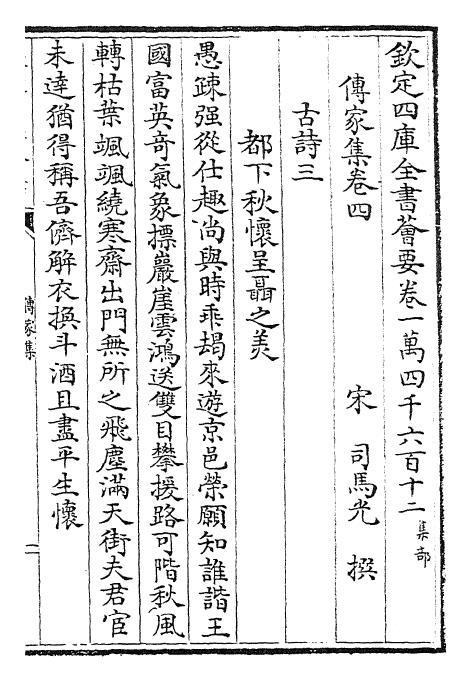 欽定四庫全書薈要卷一萬四千六百十二 集部
傳家集卷四 宋 司馬光 撰
古詩三
都下秋懷呈聶之美
愚疎强從仕趣尚與時乖朅來遊京邑榮願知誰諧王
國富英奇氣象摽巖崖雲鴻送雙目攀援路可階秋風
轉枯葉颯颯繞寒齋出門無所之飛塵滿天街夫君官
未達猶得稱吾儕解衣換斗酒且盡平生懷
傳家集